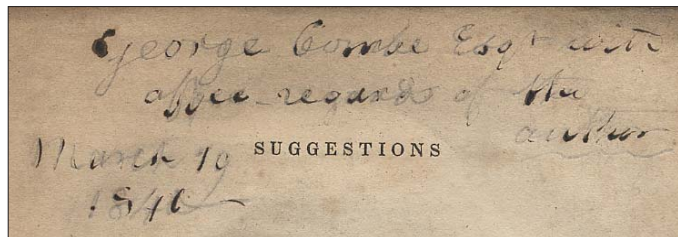 George Combe Esqr with
affec. regards of the
author
SUGGESTIONS
March 19
1840